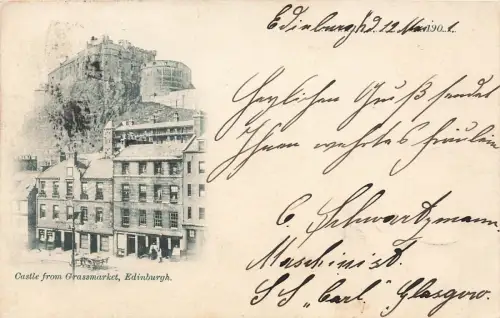 Edinburgh d. 12 Mai 1901.
Herzlichen Gruß sendet
Ihnen wehrtes Fräulein
C. Schwartzmann.
Maschinist.
SS "Carl" Glasgow.
Castle from Grassmarket, Edinburgh.